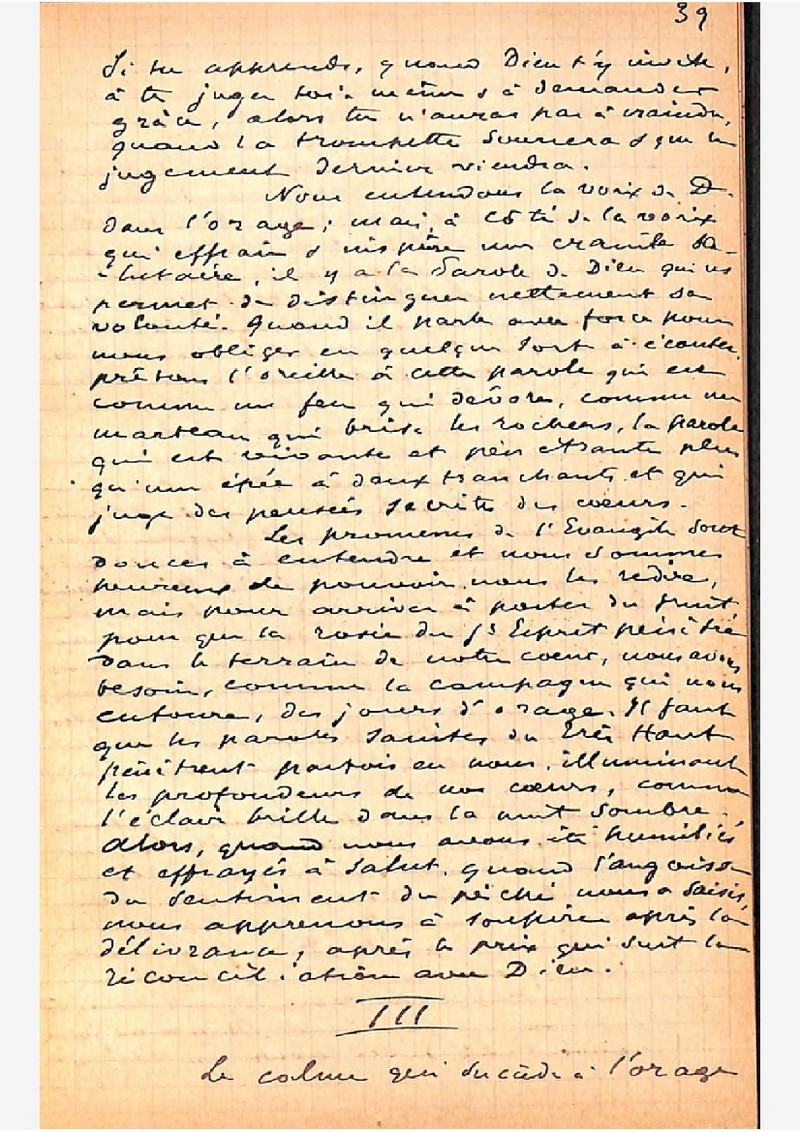 39
Si tu apprends, quand Dieu t'y invite,
à te juger toi-même & à demander
grâce, alors tu n'auras pas à craindre,
quand la trompette sonnera & que le
jugement dernier viendra.
Nous entendons la voix de D.
dans l'orage; mais, à côté de la voix
qui effraie & inspire une crainte sa-
-lutaire, il y a la Parole de Dieu qui ns
permet de distinguer nettement sa
volonté. Quand il parle avec force pour
nous obliger en quelque sort à écouter,
prêtons l'oreille à cette parole qui est
comme un feu qui dévore, comme un
marteau qui brise les rochers, la parole
qui est vivante et pénétrante plus
qu'une épée à deux tranchants et qui
juge des pensées secrètes des cœurs.
Les promesses de l'Evangile sont
douces à entendre et nous sommes
heureux de pouvoir nous les redire,
mais pour arriver à porter du fruit,
pour que la rosée du St Esprit pénètre
dans le terrain de notre cœur, nous avons
besoin, comme la campagne qui nous
entoure, des jours d'orage. Il faut
que les paroles saintes du Très Haut
pénètrent parfois en nous, illuminant
les profondeurs de nos cœurs, comme
l'éclair brille dans la nuit sombre.
Alors, quand nous avons été humiliés
et effrayés à salut, quand l'angoisse
du sentiment du péché nous a saisis,
nous apprenons à soupirer après la
délivrance, après la paix qui suit la
réconciliation avec Dieu.
III
Le calme qui succède à l'orage